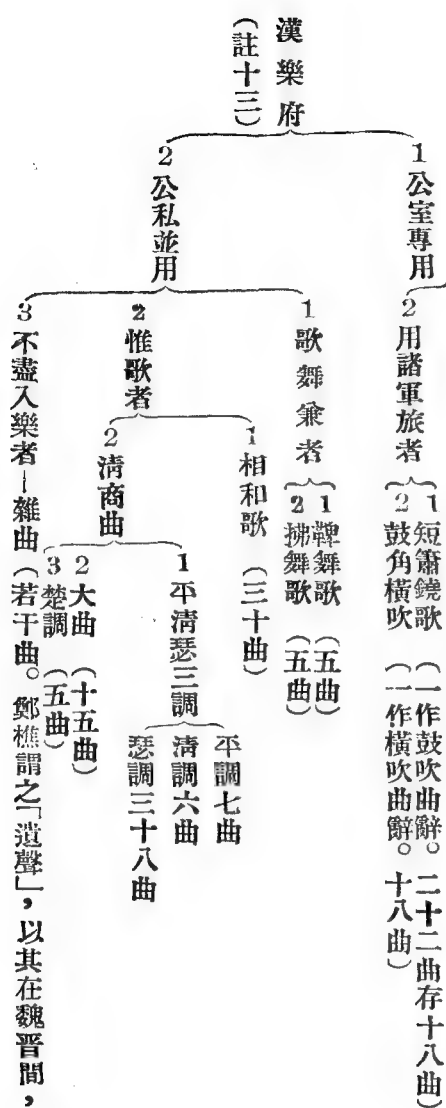 漢樂府
(註十三)
1公室專用
2用諸軍旅者
1短簫鐃歌 (一作鼓吹曲辭。二十二曲存十八曲)
2鼓角橫吹 (一作橫吹曲辭。十八曲)
2公私並用
1歌舞兼者
1鞞舞歌 (五曲)
2拂舞歌 (五曲)
2惟歌者
1相和歌 (三十曲)
2清商曲
1平清瑟三調
平調七曲
清調六曲
瑟調三十八曲
2大曲 (十五曲)
3楚調 (五曲)
3不盡入樂者—雜曲(若干曲。鄭樵謂之「遺聲」,以其在魏晋間,